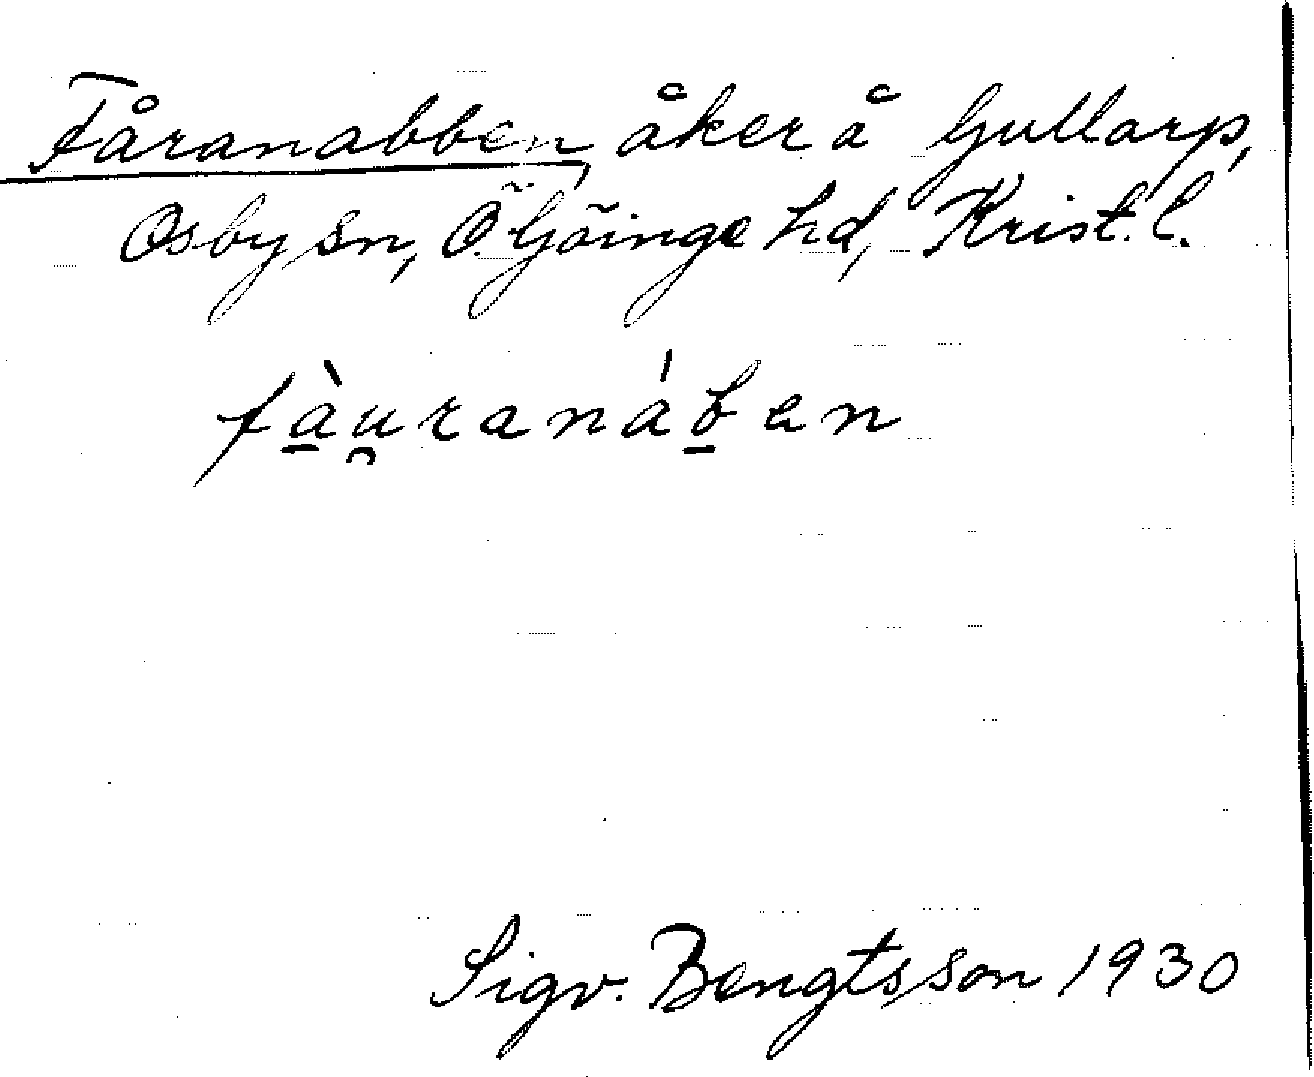 Fåranabben, åker å Gullarp,
Osby sn, Ö. Göinge hd, Krist. l.
fà̱u̯ranáḇen
Sigv. Bengtsson 1930